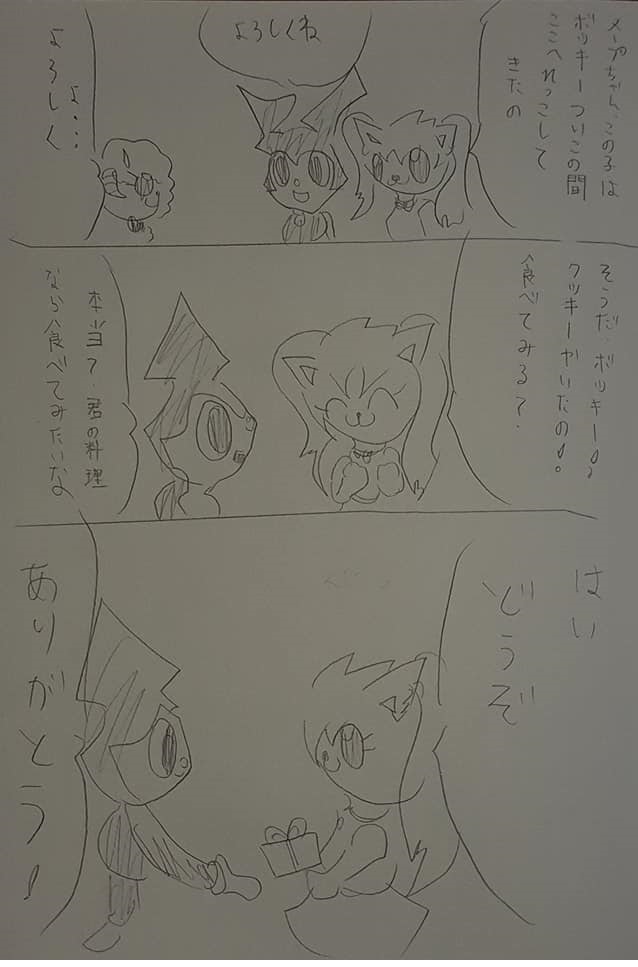 メープちゃん、この子は
ボッキーついこの間
ここへれっこして
きたの
よろしくね
よ・・・
よろしく
そうだ、ボッキー♪
クッキーやいたの♪。
食べてみる？
本当？、君の料理
なら食べてみたいな
はい
どうぞ
ありがとう♪